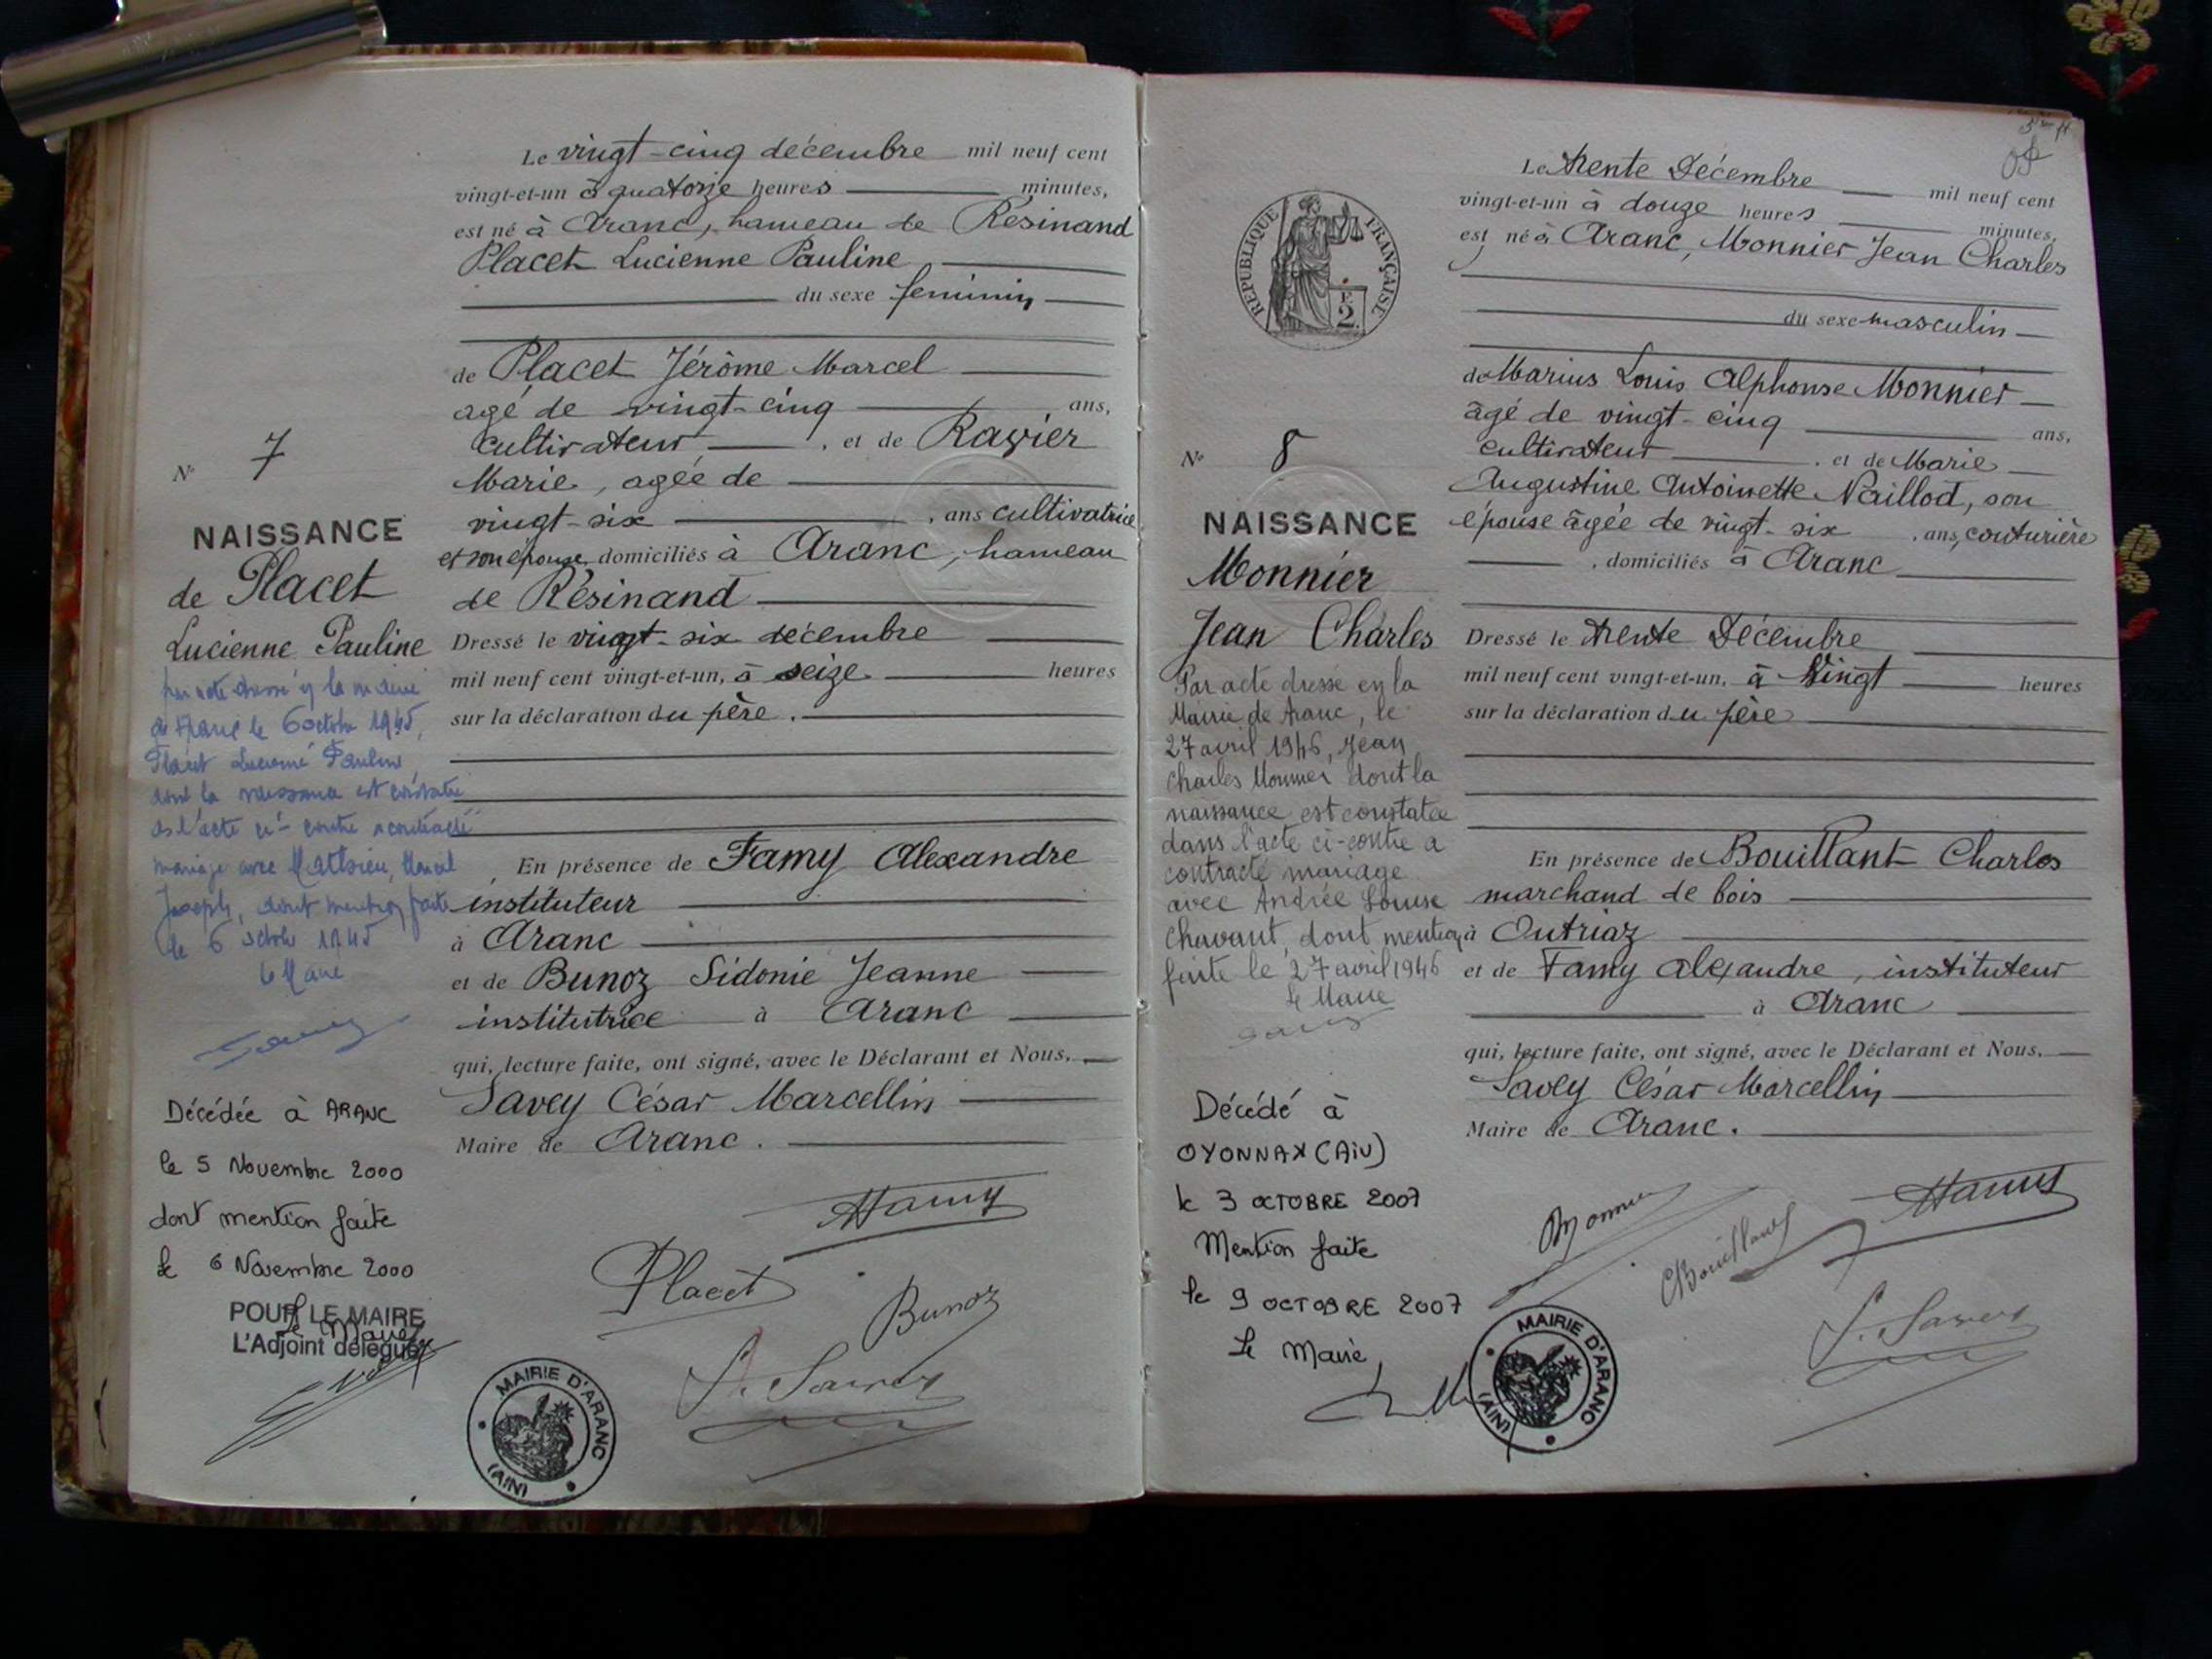 Le vingt-cinq décembre mil neuf cent
vingt-et-un à quatorze heures minutes,
est né à Aranc, hameau de Résinand
Placet Lucienne Pauline
du sexe feminin
de Placet Jérôme Marcel
agé de vingt-cinq ans,
cultivateur , et de Ravier
Marie, agée de
vingt-six , ans cultivatrice
et son épouse, domiciliés à Aranc, hameau
de Résinand
Dressé le vingt-six décembre
mil neuf cent vingt-et-un, à seize heures
sur la déclaration du père.
En présence de Famy Alexandre
instituteur
à Aranc
et de Bunoz Sidonie Jeanne
institutrice à Aranc
qui, lecture faite, ont signé, avec le Déclarant et Nous,
Savey César Marcellin
Maire de Aranc.
AFamy
Placet
Bunoz
S. Savey
MAIRIE D'ARANC
(AIN)
N° 7
NAISSANCE
de Placet
Lucienne Pauline
par acte dressé en la mairie
de Aranc le 6 octobre 1945,
Placet Lucienne Pauline
dont la naissance est constatée
ds l'acte ci-contre a contracté
mariage avec Mathieu, Marcel
Joseph, dont mention faite
le 6 octobre 1945
le Maire
Décédée à ARANC
le 5 Novembre 2000
dont mention faite
le 6 Novembre 2000
POUR LE MAIRE
Le Maire
L'Adjoint délégué
RÉPUBLIQUE FRANÇAISE
F.
2
Le trente Décembre mil neuf cent
vingt-et-un à douze heures minutes,
est né à Aranc, Monnier Jean Charles
du sexe masculin
de Marius Louis Alphonse Monnier
âgé de vingt-cinq ans,
cultivateur , et de Marie
Augustine Antoinette Naillod, son
épouse âgée de vingt-six , ans, couturière
, domiciliés à Aranc
Dressé le trente Décembre
mil neuf cent vingt-et-un, à Vingt heures
sur la déclaration du père
En présence de Bouillant Charles
marchand de bois
à Outriaz
et de Famy Alexandre, instituteur
à Aranc
qui, lecture faite, ont signé, avec le Déclarant et Nous,
Savey César Marcellin
Maire de Aranc.
Monnier
CBouillant
AFamy
S. Savey
N° 8
NAISSANCE
Monnier
Jean Charles
Par acte dressé en la
Mairie de Aranc, le
27 avril 1946, Jean
Charles Monnier dont la
naissance est constatée
dans l'acte ci-contre a
contracté mariage
avec Andrée Louise
Chavant, dont mention
faite le 27 avril 1946
Le Maire
Décédé à
OYONNAX (AIN)
le 3 OCTOBRE 2007
Mention faite
le 9 OCTOBRE 2007
Le Maire,
MAIRIE D'ARANC
(AIN)